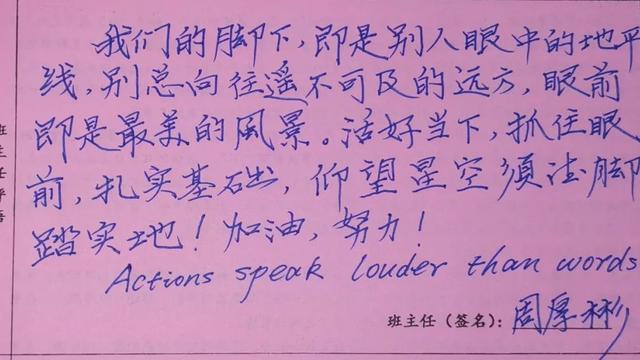 我们的脚下,即是别人眼中的地平
线,别总向往遥不可及的远方,眼前
即是最美的風景。活好当下,抓住眼
前,扎实基础,仰望星空须法脚
踏实地!加油,努力!
Actions speak louder than words
班主任(签名):周厚彬
班主任评语